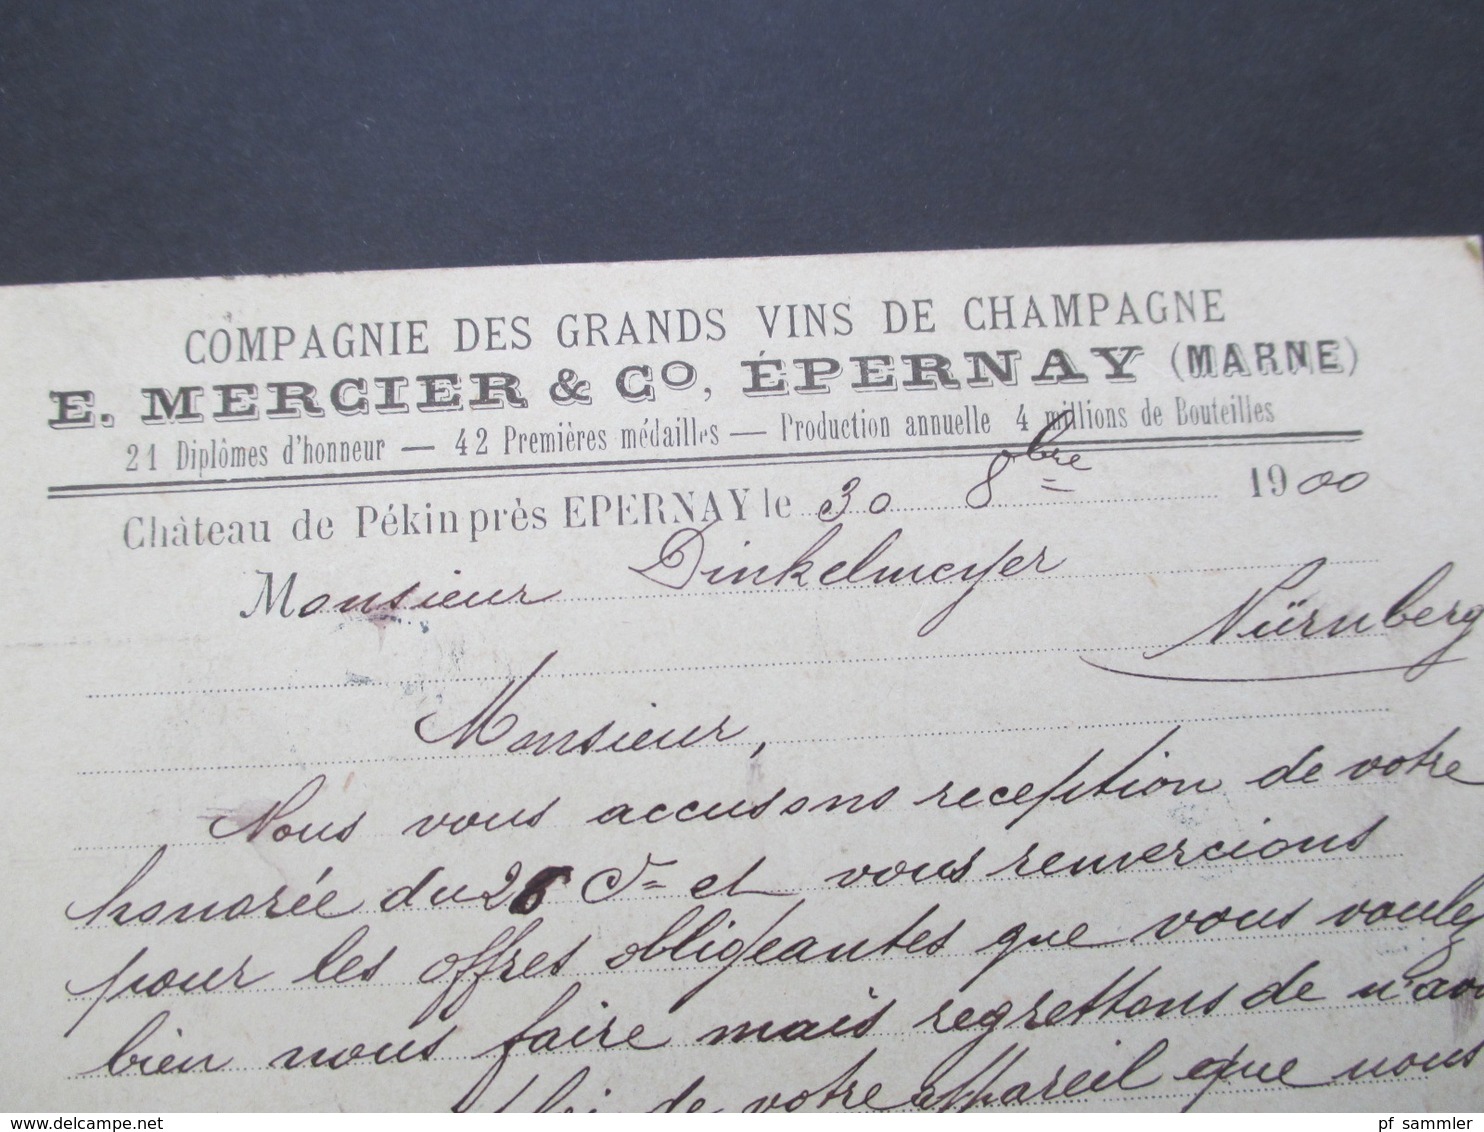 COMPAGNIE DES GRANDS VINS DE CHAMPAGNE
E. MERCIER & Cº, ÉPERNAY (MARNE)
21 Diplômes d'honneur — 42 Premières médailles — Production annuelle 4 millions de Bouteilles
Château de Pékin près EPERNAY le 30 8bre 1900
Monsieur Dinkelmeyer
Nürnberg
Monsieur,
Nous vous accusons reception de votre
honorée du 26 Ct et vous remercions
pour les offres obligeantes que vous voulez
bien nous faire mais regrettons de n'avoir
de votre appareil que nous
pf sammler